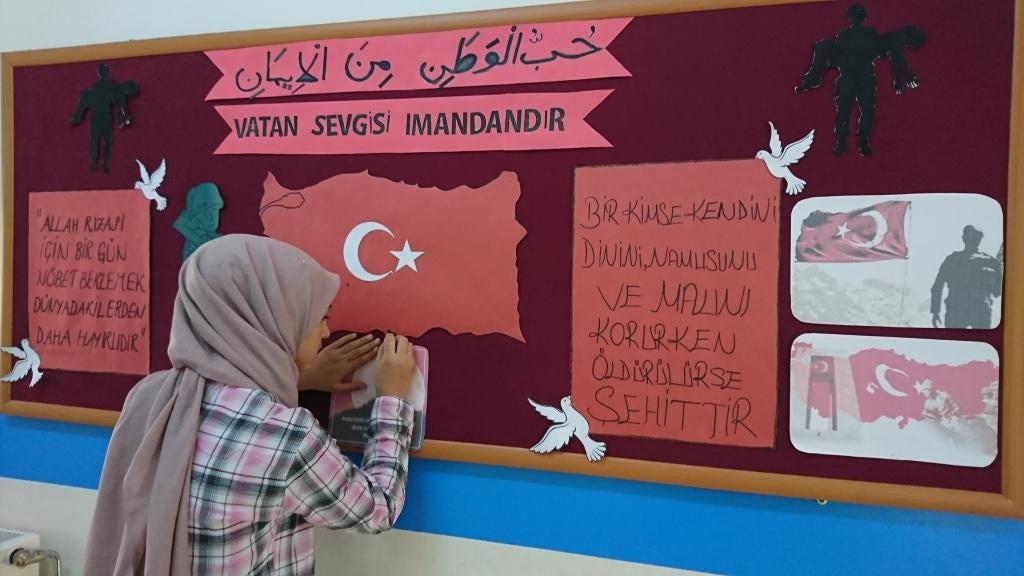 حُبُّ الْوَطَنِ مِنَ الْإِيمَانِ
VATAN SEVGİSİ IMANDANDIR
"ALLAH RIZASI
İÇİN BİR GÜN
NÖBET BEKLEMEK
DÜNYADAKİLERDEN
DAHA HAYIRLIDIR"
BİR KİMSE KENDİNİ
DİNİNİ, NAMUSUNU
VE MALINI
KORURKEN
ÖLDÜRÜLÜRSE
ŞEHİTTİR